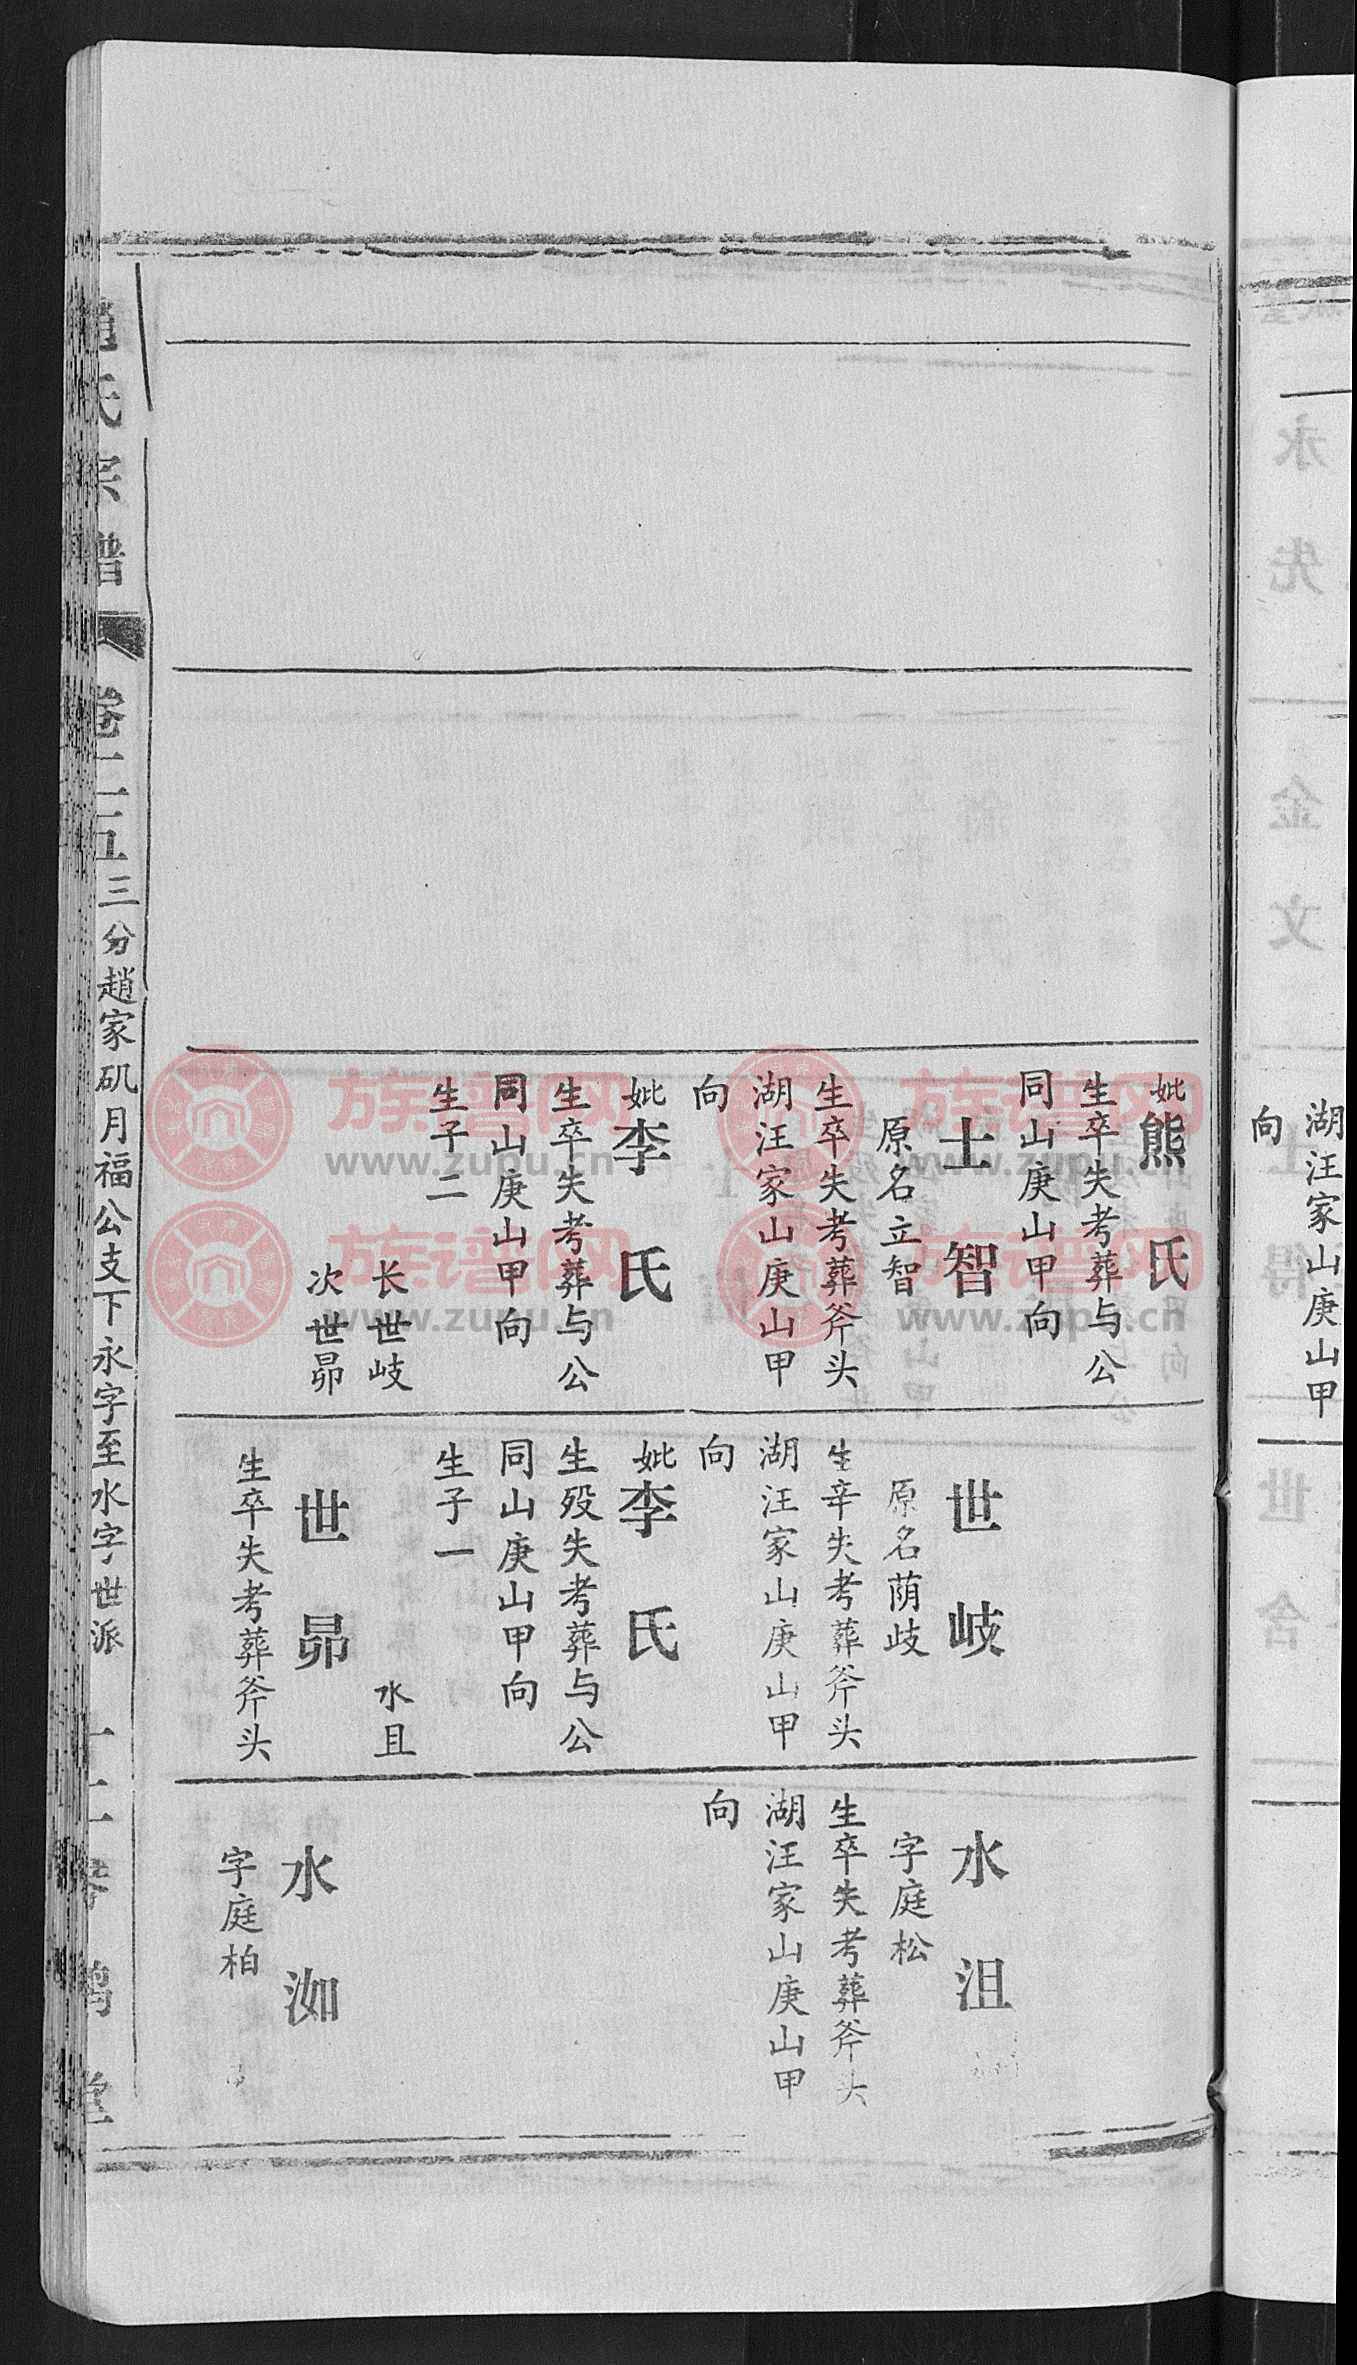 湖汪家山庚山甲
向
妣熊氏
生卒失考葬与公
同山庚山甲向
士智
原名立智
生卒失考葬斧头
湖汪家山庚山甲
向
妣李氏
生卒失考葬与公
同山庚山甲向
生子二
长世岐
次世昴
世岐
原名荫岐
生辛失考葬斧头
湖汪家山庚山甲
向
妣李氏
生殁失考葬与公
同山庚山甲向
生子一
水且
世昴
生卒失考葬斧头
水沮
字庭松
生卒失考葬斧头
湖汪家山庚山甲
向
水洳
字庭柏
趙氏宗譜
三分趙家矶月福公支下永字至水字世派
族谱网
www.zupu.cn
族谱网
www.zupu.cn
族谱网
www.zupu.cn
族谱网
www.zupu.cn